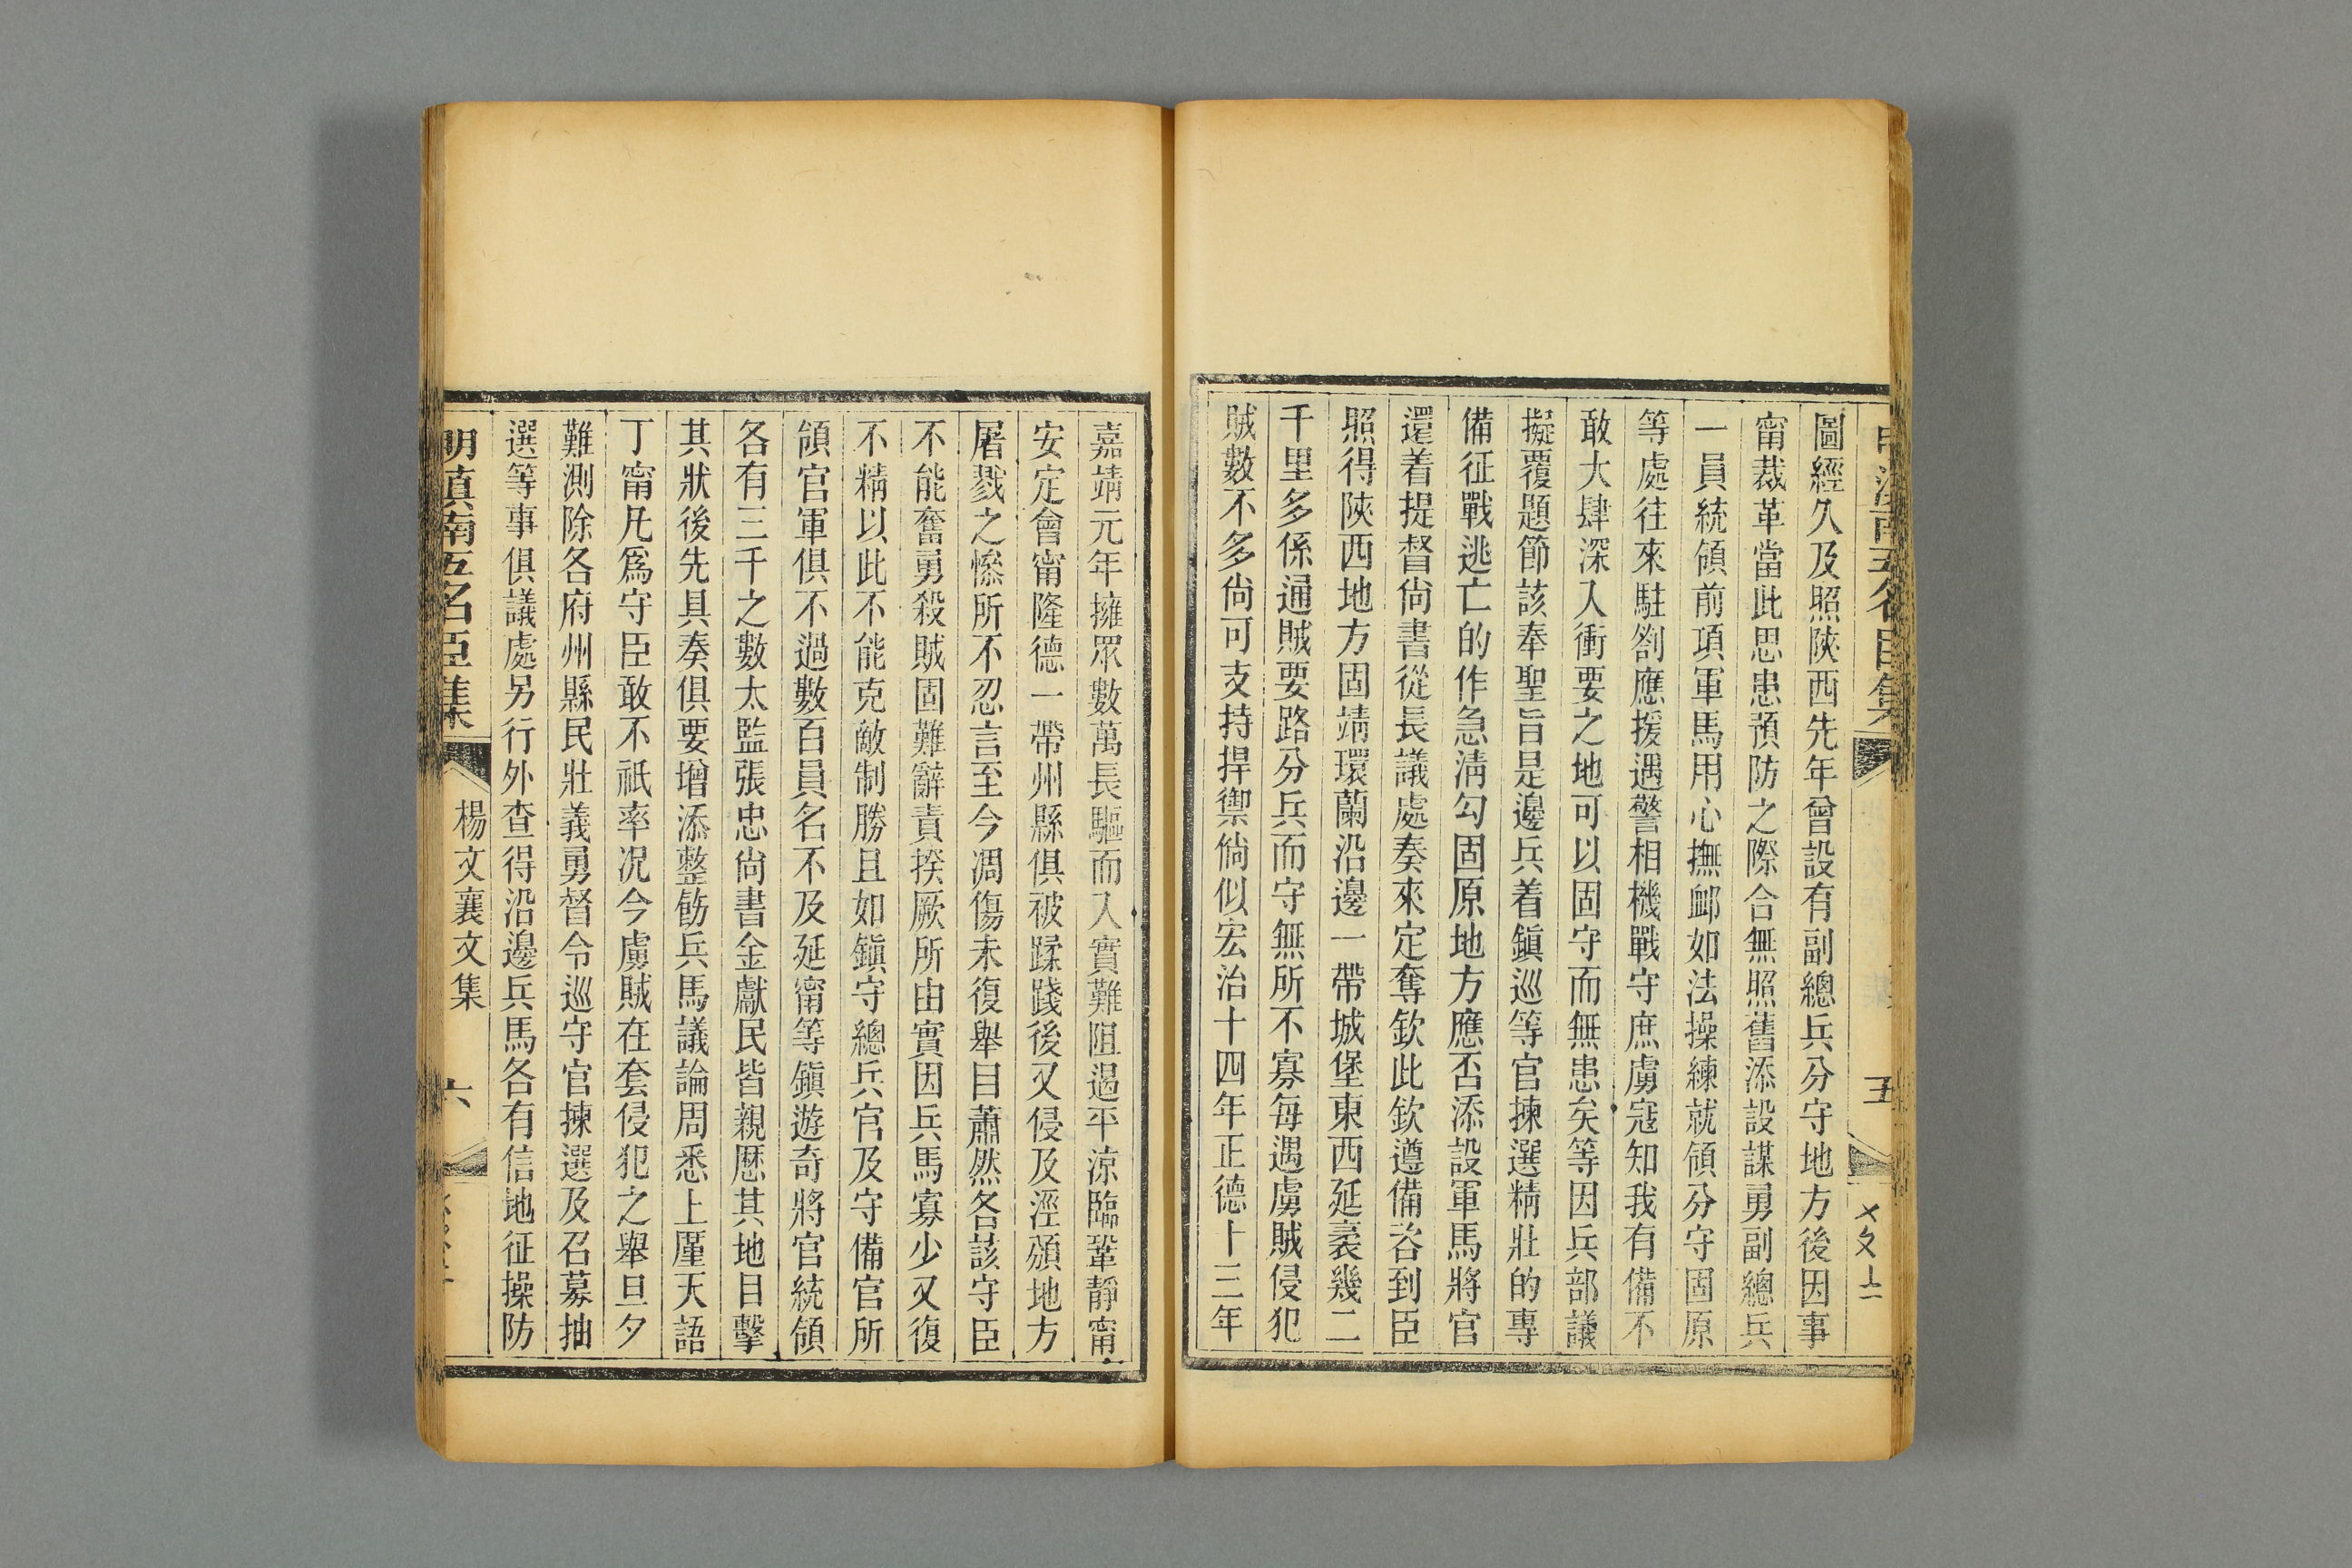 圖經久及照陝西先年曾設有副總兵分守地方後因事
甯裁革當此思患預防之際合無照舊添設謀勇副總兵
一員統領前項軍馬用心撫卹如法操練就領分守固原
等處往來駐劄應援遇警相機戰守庶虜寇知我有備不
敢大肆深入衝要之地可以固守而無患矣等因兵部議
擬覆題節該奉聖旨是邊兵着鎮巡等官揀選精壯的專
備征戰逃亡的作急淸勾固原地方應否添設軍馬將官
還着提督尙書從長議處奏來定奪欽此欽遵備咨到臣
照得陝西地方固靖環蘭沿邊一帶城堡東西延袤幾二
千里多係通賊要路分兵而守無所不寡每遇虜賊侵犯
賊數不多尙可支持捍禦倘似宏治十四年正德十三年
嘉靖元年擁眾數萬長驅而入實難阻遏平涼臨鞏靜甯
安定會甯隆德一帶州縣俱被蹂踐後又侵及涇㵋地方
屠戮之慘所不忍言至今凋傷未復舉目蕭然各該守臣
不能奮勇殺賊固難辭責揆厥所由實因兵馬寡少又復
不精以此不能克敵制勝且如鎮守總兵官及守備官所
領官軍俱不過數百員名不及延甯等鎮遊奇將官統領
各有三千之數太監張忠尙書金獻民皆親歷其地目擊
其狀後先具奏俱要增添整飭兵馬議論周悉上廑天語
丁甯凡爲守臣敢不祇率况今虜賊在套侵犯之舉旦夕
難測除各府州縣民壯義勇督令巡守官揀選及召募抽
選等事俱議處另行外查得沿邊兵馬各有信地征操防
明滇南五名臣集
楊文襄文集
六